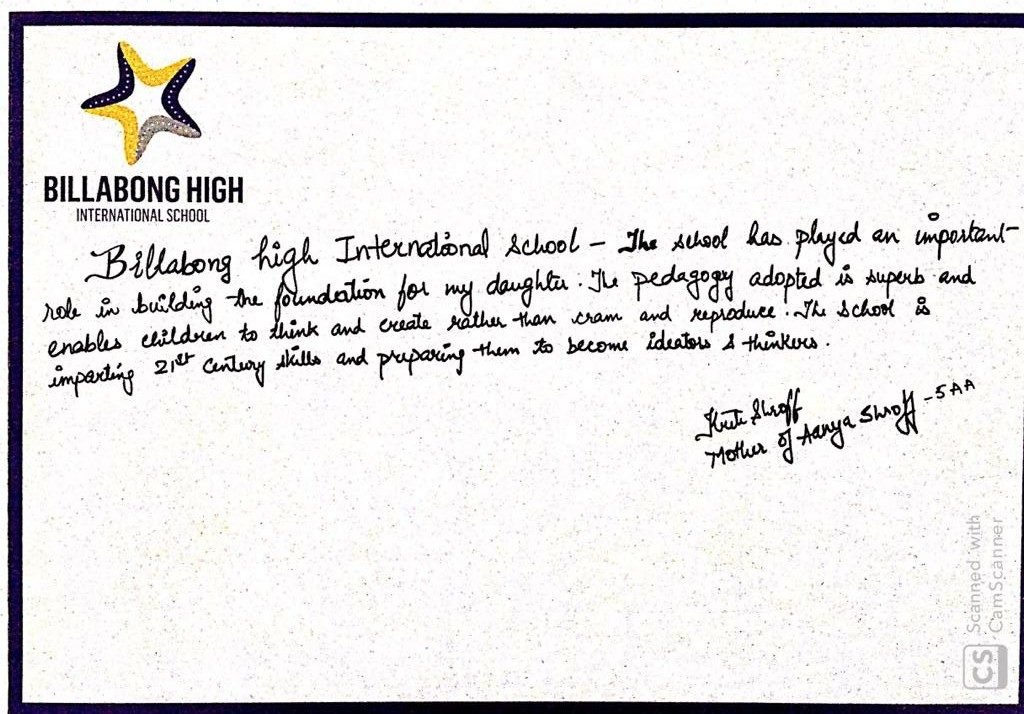 BILLABONG HIGH
INTERNATIONAL SCHOOL
Billabong high International School – The school has played an important
role in building the foundation for my daughter. The pedagogy adopted is superb and
enables children to think and create rather than cram and reproduce. The School is
imparting 21st Century skills and preparing them to become ideators & thinkers.
Kruti Shroff
Mother of Aanya Shroff – 5AA
CS Scanned with
CamScanner